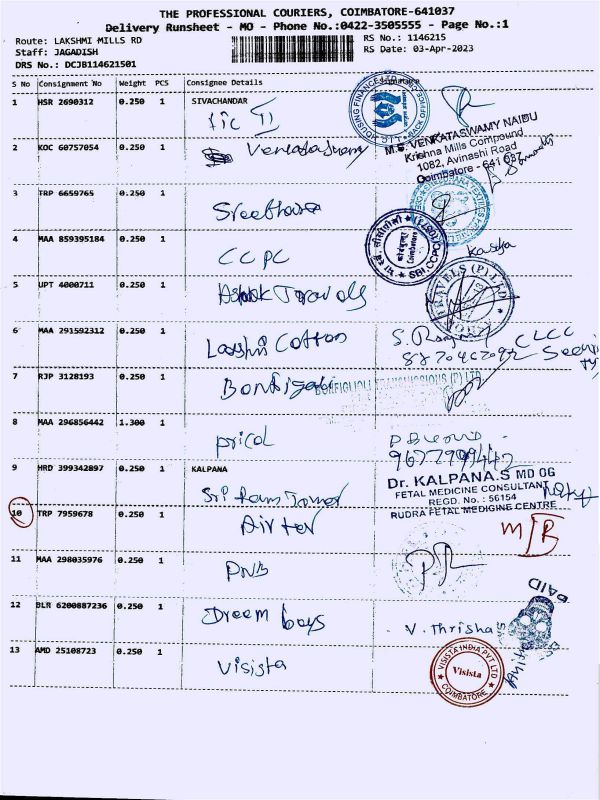 THE PROFESSIONAL COURIERS, COIMBATORE-641037
Delivery Runsheet - MO - Phone No.:0422-3505555 - Page No.:1
Route: LAKSHMI MILLS RD
Staff: JAGADISH
DRS No.: DCJB114621501
RS No.: 1146215
RS Date: 03-Apr-2023
S No Consignment No Weight PCS Consignee Details Signature
1 HSR 2690312 0.250 1 SIVACHANDAR
LIC II
2 KOC 60757054 0.250 1
Venkataswamy
M.G. VENKATASWAMY NAIDU
Krishna Mills Compound
1082, Avinashi Road
Coimbatore - 641 037
3 TRP 6659765 0.250 1
4 MAA 859395184 0.250 1
CCPC
SBI.CCPC
Coimbatore
5 UPT 4000711 0.250 1
Ashok Travels
TRAVELS (P) LTD
6 MAA 291592312 0.250 1
Cotton
CLCC
7 RJP 3128193 0.250 1
BONFIGLIOLI TRANSMISSIONS (P) LTD
8 MAA 296856442 1.300 1
pricol
9 HRD 399342897 0.250 1 KALPANA
Dr. KALPANA.S MD OG
FETAL MEDICINE CONSULTANT
REGD. No. : 56154
RUDRA FETAL MEDICINE CENTRE
Sri Ram Tower
10 TRP 7959678 0.250 1
Airtel
M/B
11 MAA 298035976 0.250 1
PNB
12 BLR 6200887236 0.250 1
Dreem boys
V. Thrisha
PAID
13 AMD 25108723 0.250 1
Visista
VISISTA INDIA PVT LTD
Visista
COIMBATORE